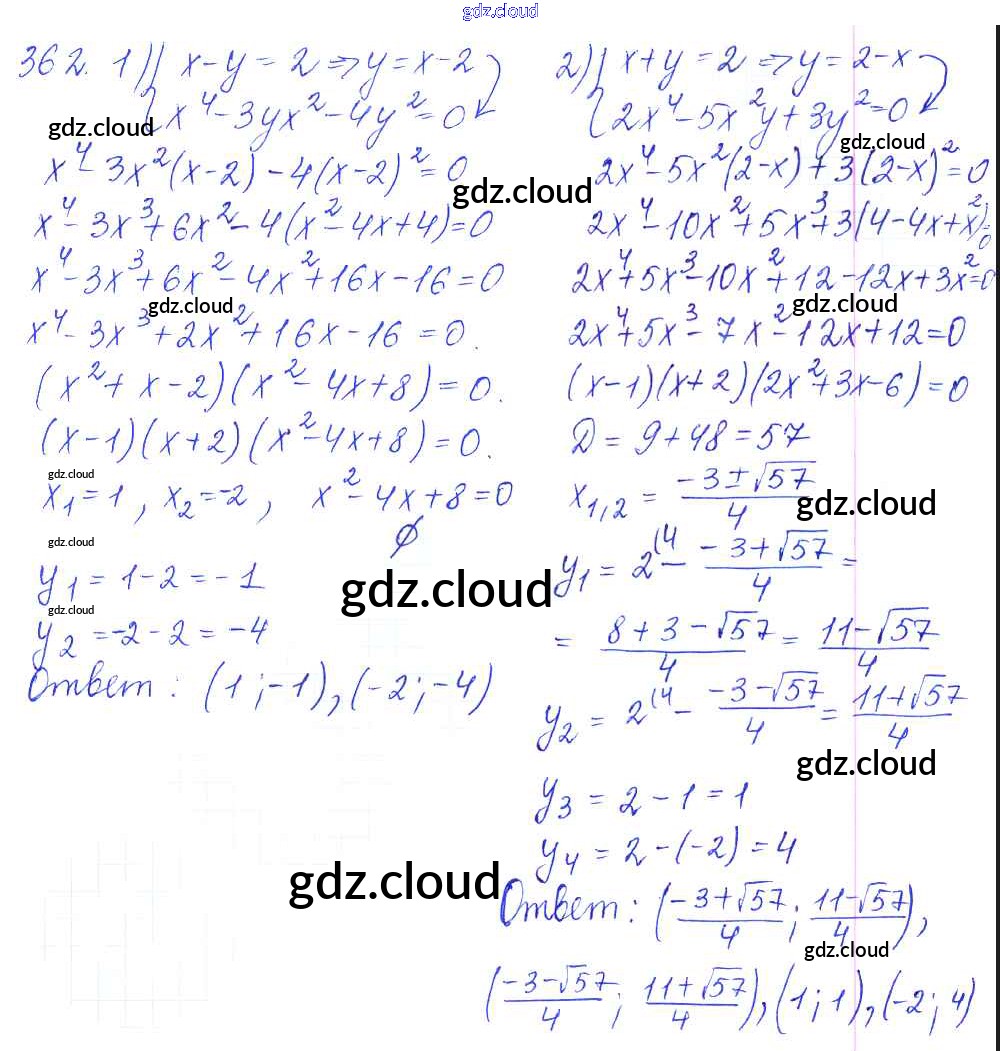 gdz.cloud
362. 1) { x-y=2 ⇒ y=x-2
x⁴-3yx²-4y²=0
gdz.cloud
x⁴-3x²(x-2)-4(x-2)²=0
gdz.cloud
x⁴-3x³+6x²-4(x²-4x+4)=0
x⁴-3x³+6x²-4x²+16x-16=0
gdz.cloud
x⁴-3x³+2x²+16x-16=0.
(x²+x-2)(x²-4x+8)=0.
(x-1)(x+2)(x²-4x+8)=0.
gdz.cloud
x₁=1, x₂=-2, x²-4x+8=0
∅
gdz.cloud
y₁=1-2=-1
gdz.cloud
gdz.cloud
y₂=-2-2=-4
Ответ: (1;-1),(-2;-4)
2) { x+y=2 ⇒ y=2-x
2x⁴-5x²y+3y²=0
gdz.cloud
2x⁴-5x²(2-x)+3(2-x)²=0
2x⁴-10x²+5x³+3(4-4x+x²)=0
2x⁴+5x³-10x²+12-12x+3x²=0
gdz.cloud
2x⁴+5x³-7x²-12x+12=0
(x-1)(x+2)(2x²+3x-6)=0
D=9+48=57
x₁,₂ = (-3±√57)/4
gdz.cloud
y₁ = 2⁽⁴ - (-3+√57)/4 =
= (8+3-√57)/4 = (11-√57)/4
y₂ = 2⁽⁴ - (-3-√57)/4 = (11+√57)/4
gdz.cloud
y₃=2-1=1
y₄=2-(-2)=4
gdz.cloud
Ответ: ((-3+√57)/4; (11-√57)/4),
gdz.cloud
((-3-√57)/4; (11+√57)/4),(1;1),(-2;4)